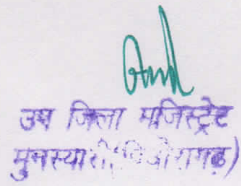 उप जिला मजिस्ट्रेट
मुनस्यारी(पिथोरागढ़)